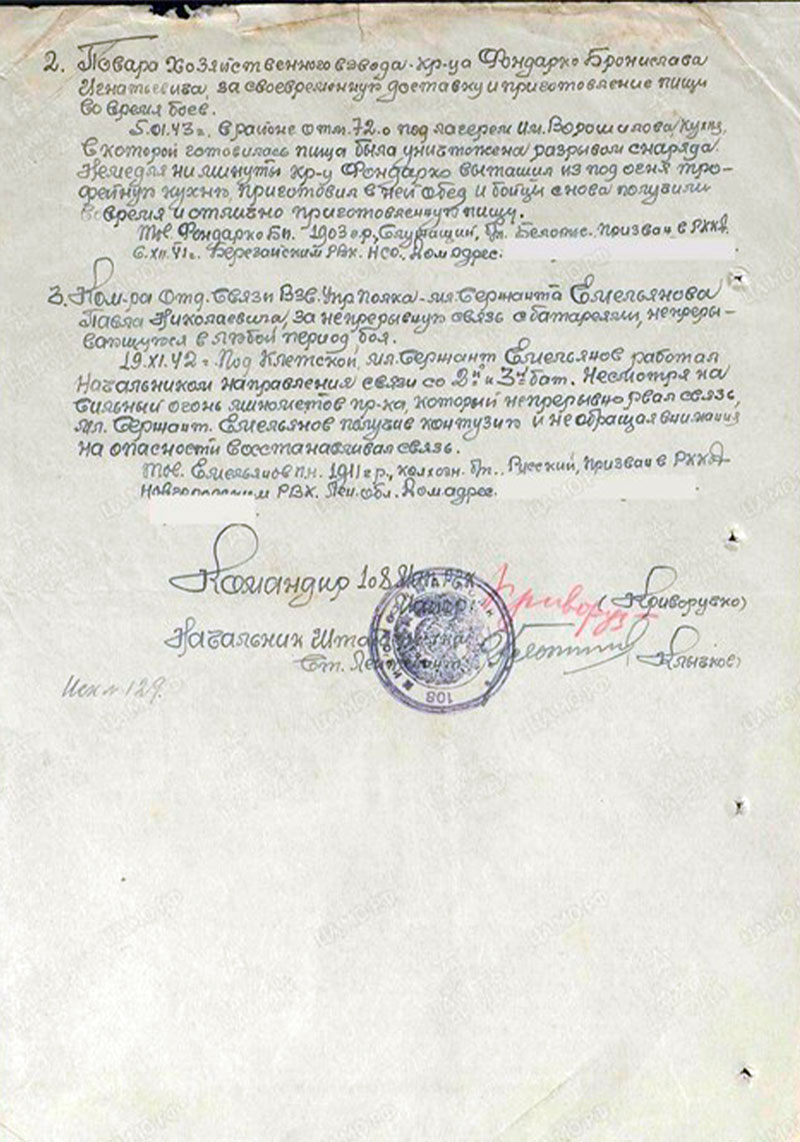 2. Повара Хозяйственного взвода - кр-ца Фондарко Бронислава
Игнатьевича, за своевременную доставку и приготовление пищи
во время боев.
5.01.43 г. в районе отм. 72.0 под лагерем им. Ворошилова, кухня,
в которой готовилась пища была уничтожена разрывом снаряда.
Немедля ни минуты кр-ц Фондарко вытащил из под огня тро-
фейную кухню, приготовил в ней обед и бойцы снова получили
во время и отлично приготовленную пищу.
Тов. Фондарко Б.И. 1903 г.р., Служащий, бп. Белорус. Призван в РККА
6.XII.41 г. РВК. НСО. Дом адрес.
3. Ком-ра Отд. Связи Взв. Упр Полка - мл. Сержанта Емельянова
Павла Николаевича, за непрерывную связь с батареями, непреры-
вающуюся в любой период боя.
19.XI.42 г. Под Клетской, мл. Сержант Емельянов работал
Начальником направления связи со 2й и 3й бат. Несмотря на
сильный огонь минометов пр-ка, который непрерывно рвал связь,
мл. Сержант. Емельянов получив контузию и не обращая внимания
на опасности восстанавливал связь.
Тов. Емельянов П.Н. 1911 г.р., колхозн. бп., Русский, призван в РККА
РВК. Лен. обл. Дом адрес.
Командир 108
Майор Криворуч (Криворучко)
Начальник Штаба Полка
Ст. Лейтенант (Клычков)
Исх № 129.
108
ЦАМО.РФ